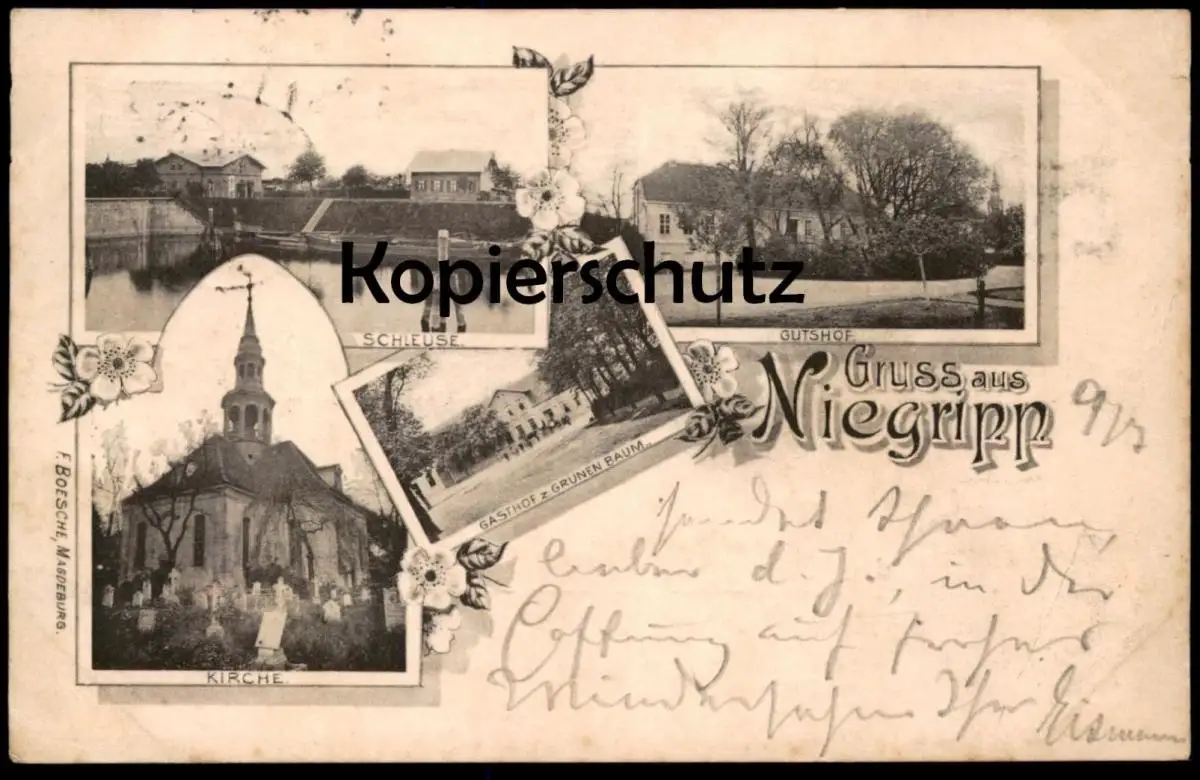 SCHLEUSE.
GUTSHOF.
Kopierschutz
Gruss aus
Niegripp
GASTHOF Z GRÜNEN BAUM.
KIRCHE.
F. BOESCHE, MAGDEBURG.
sendet
d. J., in der
Hoffnung auf frohes
Wiedersehen Ihr Eismann